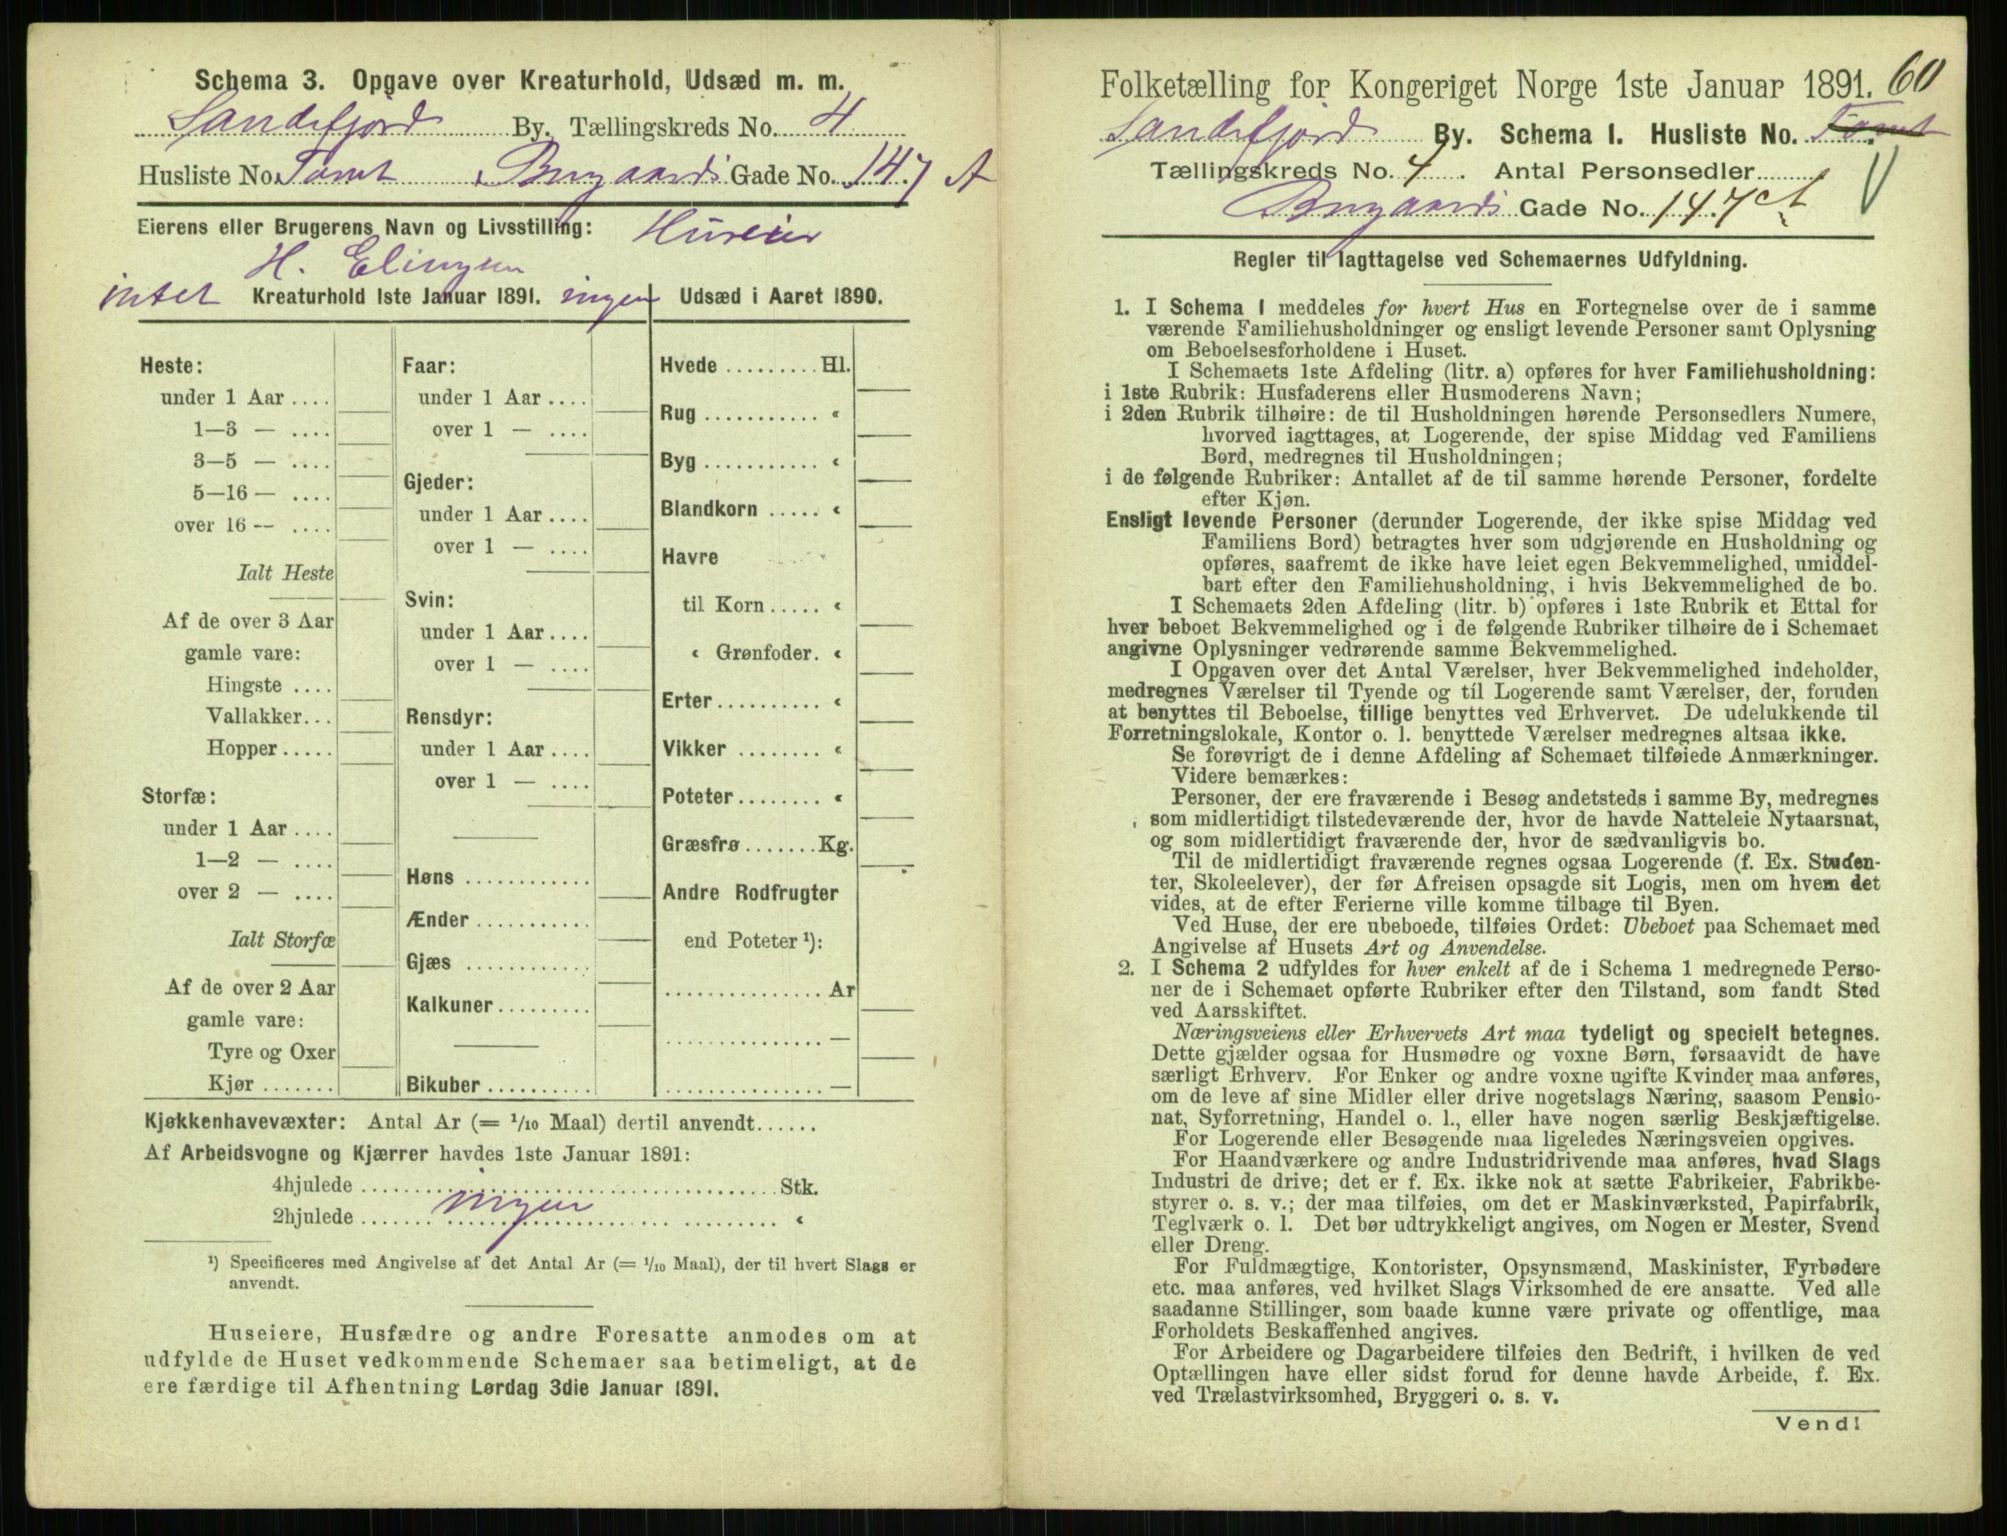 Schema 3. Opgave over Kreaturhold, Udsæd m. m.
Sandefjord By. Tællingskreds No. 4
Husliste No. Tomt Bugaards Gade No. 147 A
Eierens eller Brugerens Navn og Livsstilling: Huseier
H. Elingsen
intet Kreaturhold 1ste Januar 1891. ingen Udsæd i Aaret 1890.
Heste:
under 1 Aar ....
1—3 — ....
3—5 — ....
5—16 — ....
over 16 — ....
Ialt Heste
Af de over 3 Aar
gamle vare:
Hingste ....
Vallakker...
Hopper .....
Storfæ:
under 1 Aar ....
1—2 — ....
over 2 — ....
Ialt Storfæ
Af de over 2 Aar
gamle vare:
Tyre og Oxer
Kjør .......
Faar:
under 1 Aar ....
over 1 — ....
Gjeder:
under 1 Aar ....
over 1 — ....
Svin:
under 1 Aar ....
over 1 — ....
Rensdyr:
under 1 Aar ....
over 1 — ....
Høns ............
Ænder ...........
Gjæs ............
Kalkuner .........
Bikuber ..........
Hvede ......... Hl.
Rug ........... «
Byg ........... «
Blandkorn ..... «
Havre «
til Korn ..... «
« Grønfoder. «
Erter .......... «
Vikker ........ «
Poteter ........ «
Græsfrø ....... Kg.
Andre Rodfrugter
end Poteter ¹):
............... Ar
............... —
............... —
Kjøkkenhavevæxter: Antal Ar (= 1/10 Maal) dertil anvendt......
Af Arbeidsvogne og Kjærrer havdes 1ste Januar 1891:
4hjulede ........ Stk.
2hjulede ....... ingen ........ «
¹) Specificeres med Angivelse af det Antal Ar (= 1/10 Maal), der til hvert Slags er
anvendt.
Huseiere, Husfædre og andre Foresatte anmodes om at
udfylde de Huset vedkommende Schemaer saa betimeligt, at de
ere færdige til Afhentning Lørdag 3die Januar 1891.
Folketælling for Kongeriget Norge 1ste Januar 1891. 60
Sandefjord By. Schema I. Husliste No. Tomt
Tællingskreds No. 4. Antal Personsedler........
Bugaards Gade No. 147 A
Regler til Iagttagelse ved Schemaernes Udfyldning.
1. I Schema 1 meddeles for hvert Hus en Fortegnelse over de i samme
værende Familiehusholdninger og ensligt levende Personer samt Oplysning
om Beboelsesforholdene i Huset.
I Schemaets 1ste Afdeling (litr. a) opføres for hver Familiehusholdning:
i 1ste Rubrik: Husfaderens eller Husmoderens Navn;
i 2den Rubrik tilhøire: de til Husholdningen hørende Personsedlers Numere,
hvorved iagttages, at Logerende, der spise Middag ved Familiens
Bord, medregnes til Husholdningen;
i de følgende Rubriker: Antallet af de til samme hørende Personer, fordelte
efter Kjøn.
Ensligt levende Personer (derunder Logerende, der ikke spise Middag ved
Familiens Bord) betragtes hver som udgjørende en Husholdning og
opføres, saafremt de ikke have leiet egen Bekvemmelighed, umiddel-
bart efter den Familiehusholdning, i hvis Bekvemmelighed de bo.
I Schemaets 2den Afdeling (litr. b) opføres i 1ste Rubrik et Ettal for
hver beboet Bekvemmelighed og i de følgende Rubriker tilhøire de i Schemaet
angivne Oplysninger vedrørende samme Bekvemmelighed.
I Opgaven over det Antal Værelser, hver Bekvemmelighed indeholder,
medregnes Værelser til Tyende og til Logerende samt Værelser, der, foruden
at benyttes til Beboelse, tillige benyttes ved Erhvervet. De udelukkende til
Forretningslokale, Kontor o. l. benyttede Værelser medregnes altsaa ikke.
Se forøvrigt de i denne Afdeling af Schemaet tilføiede Anmærkninger.
Videre bemærkes:
Personer, der ere fraværende i Besøg andetsteds i samme By, medregnes
som midlertidigt tilstedeværende der, hvor de havde Natteleie Nytaarsnat,
og som midlertidigt fraværende der, hvor de sædvanligvis bo.
Til de midlertidigt fraværende regnes ogsaa Logerende (f. Ex. Studen-
ter, Skoleelever), der før Afreisen opsagde sit Logis, men om hvem det
vides, at de efter Ferierne ville komme tilbage til Byen.
Ved Huse, der ere ubeboede, tilføies Ordet: Ubeboet paa Schemaet med
Angivelse af Husets Art og Anvendelse.
2. I Schema 2 udfyldes for hver enkelt af de i Schema 1 medregnede Perso-
ner de i Schemaet opførte Rubriker efter den Tilstand, som fandt Sted
ved Aarsskiftet.
Næringsveiens eller Erhvervets Art maa tydeligt og specielt betegnes.
Dette gjælder ogsaa for Husmødre og voxne Børn, forsaavidt de have
særligt Erhverv. For Enker og andre voxne ugifte Kvinder maa anføres,
om de leve af sine Midler eller drive nogetslags Næring, saasom Pensio-
nat, Syforretning, Handel o. l., eller have nogen særlig Beskjæftigelse.
For Logerende eller Besøgende maa ligeledes Næringsveien opgives.
For Haandværkere og andre Industridrivende maa anføres, hvad Slags
Industri de drive; det er f. Ex. ikke nok at sætte Fabrikeier, Fabrikbe-
styrer o. s. v.; der maa tilføies, om det er Maskinværksted, Papirfabrik,
Teglværk o. l. Det bør udtrykkeligt angives, om Nogen er Mester, Svend
eller Dreng.
For Fuldmægtige, Kontorister, Opsynsmænd, Maskinister, Fyrbødere
etc. maa anføres, ved hvilket Slags Virksomhed de ere ansatte. Ved alle
saadanne Stillinger, som baade kunne være private og offentlige, maa
Forholdets Beskaffenhed angives.
For Arbeidere og Dagarbeidere tilføies den Bedrift, i hvilken de ved
Optællingen have eller sidst forud for denne havde Arbeide, f. Ex.
ved Trælastvirksomhed, Bryggeri o. s. v.
Vend!